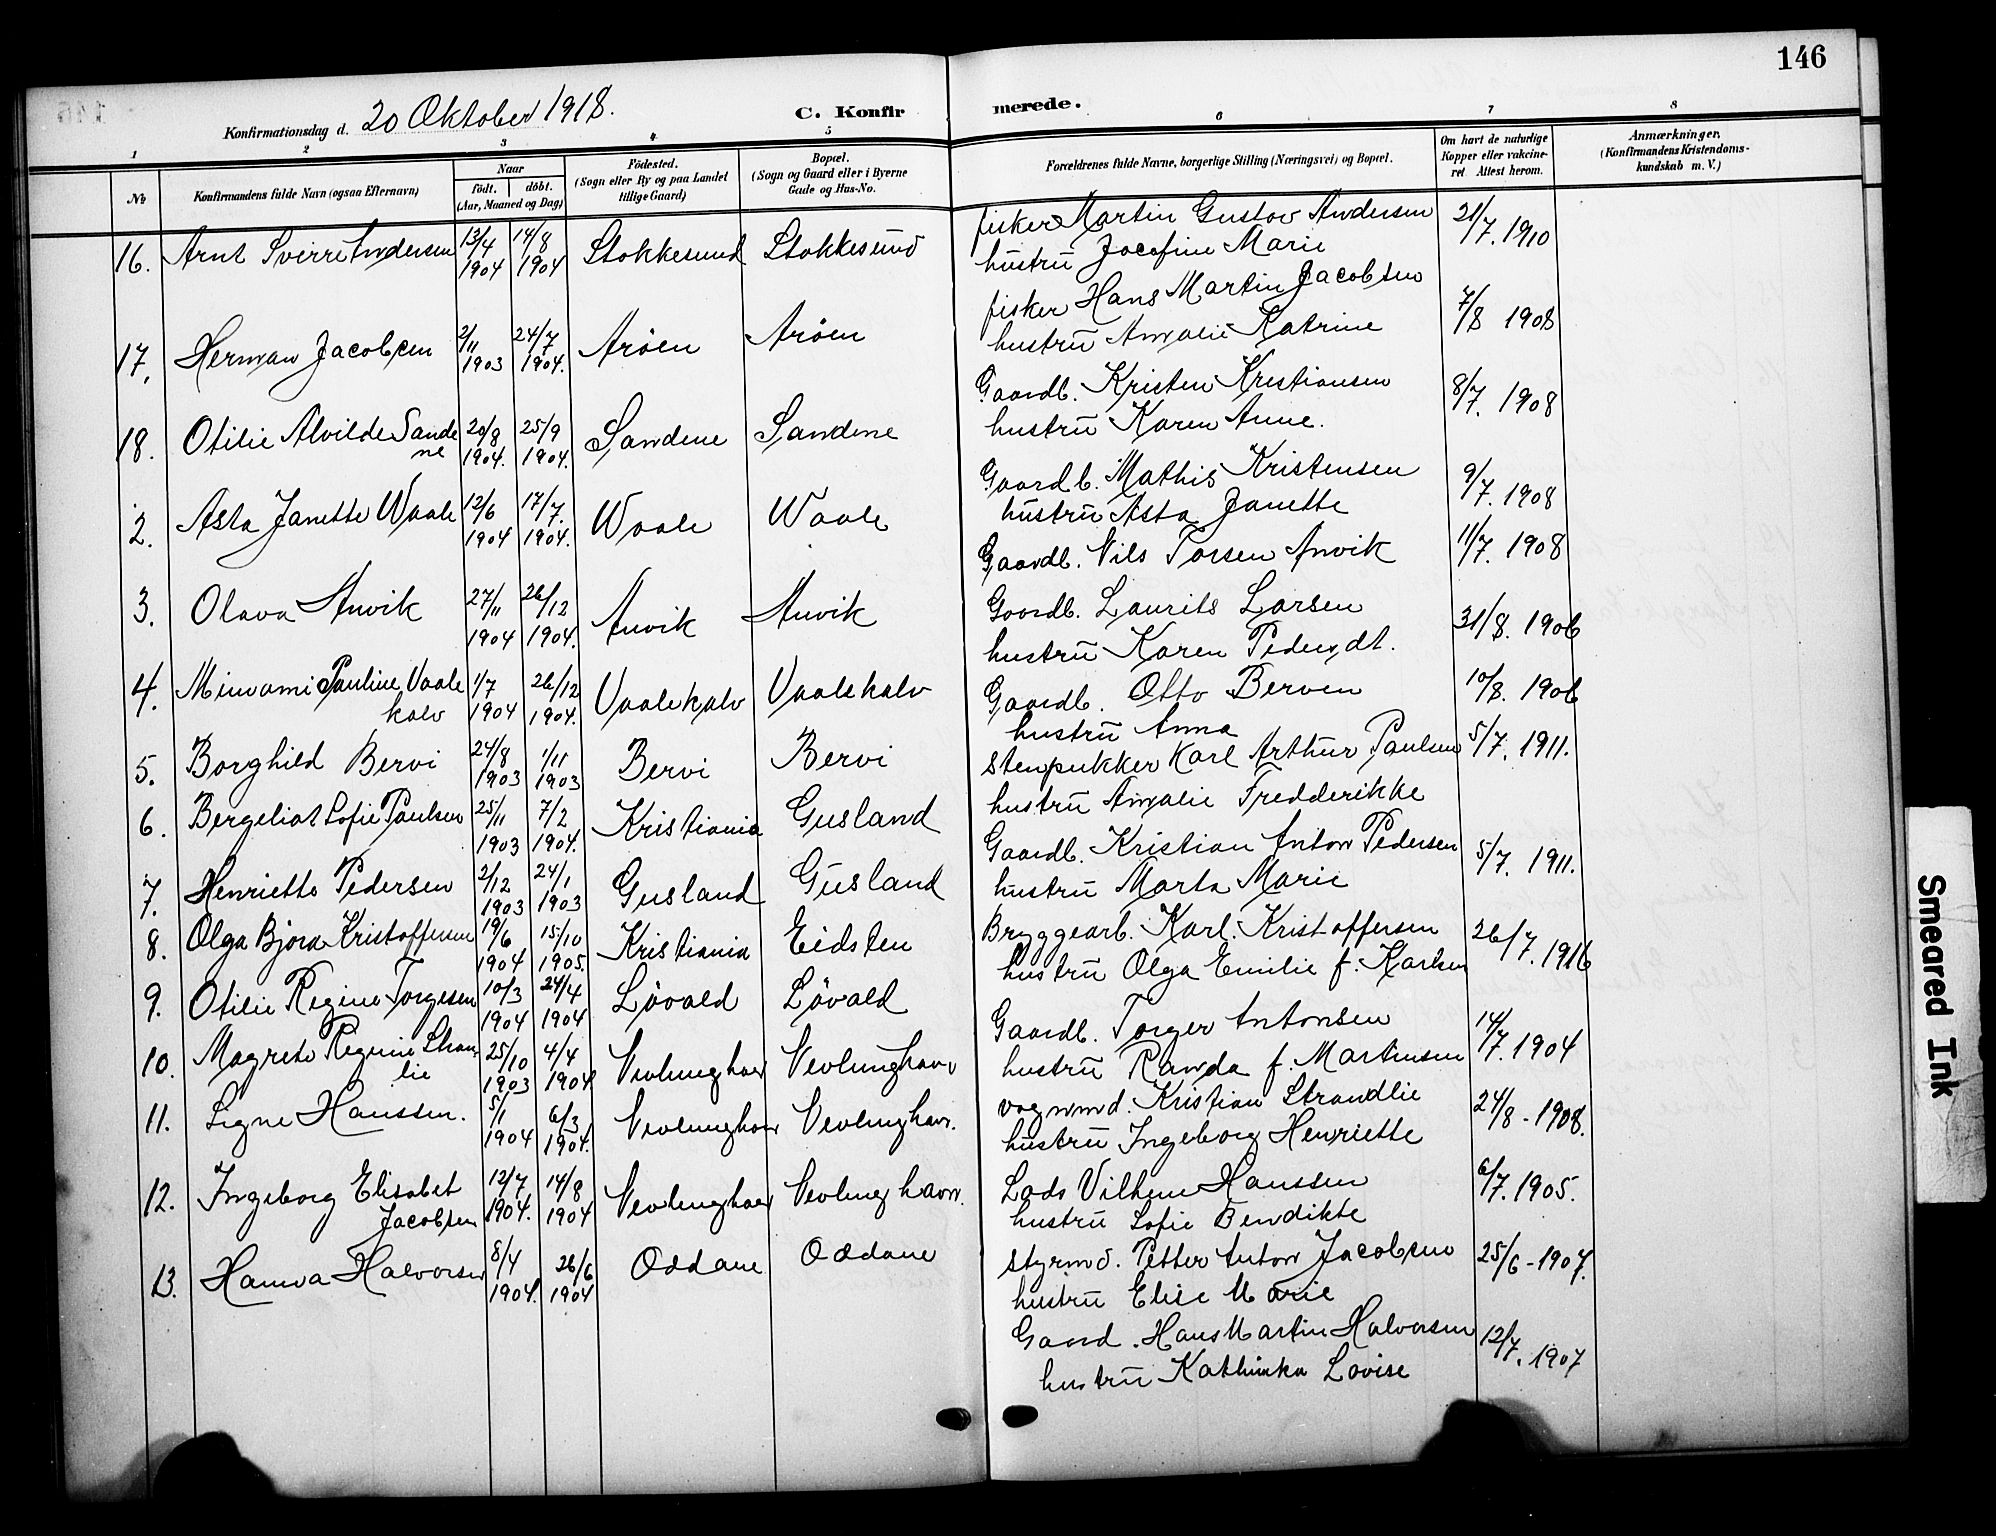 146
Konfirmationsdag d. 20 Oktober 1918.
C. Konfirmerede.
1 2 3 4 5 6 7 8
No
Konfirmandens fulde Navn (ogsaa Efternavn)
Naar
født. døbt.
(Aar, Maaned og Dag)
Fødested.
(Sogn eller By og paa Landet
tillige Gaard)
Bopæl.
(Sogn og Gaard eller i Byerne
Gade og Hus-No.
Forældrenes fulde Navne, borgerlige Stilling (Næringsvei) og Bopæl.
Om havt de naturlige
Kopper eller vakcine-
ret. Attest herom.
Anmærkninger.
(Konfirmandens Kristendoms-
kundskab m. V.)
16. Arnt Sverre Andersen 13/4 1904 14/8 1904 Stokkesund Stokkesund
fisker Martin Gustav Andersen 21/7. 1910
hustru Josefine Marie
17. Herman Jacobsen 2/11 1903 24/7 1904. Arøen Arøen
fisker Hans Martin Jacobsen 7/8 1908
hustru Amalie Katrine
18. Otilie Alvilde Sande 20/8 1904. 25/9 1904. Sandene Sandene
ne
Gaardb. Kristen Kristiansen 8/7. 1908
hustru Karen Anne.
2. Asta Janette Waale 12/6 1904 17/7. 1904. Waale Waale
Gaardb. Mathis Kristensen 9/7. 1908
hustru Asta Janette
3. Olava Anvik 27/11 1904 26/12 1904. Anvik Anvik
Gaardb. Nils Anvik 11/7. 1908
4. Pauline Vaale 1/7 1904 26/12 1904. Vaalekalv Vaalekalv
kalv
Gaardb. Laurits Larsen 31/8. 1906
hustru Karen Pedersdt.
5. Borghild Bervi 24/8 1903 1/11 1903 Bervi Bervi
Gaardb. Otto Berven 10/8. 1906
hustru Anna
6. Bergeliot Sofie Paulsen 25/11 1903 7/2 1904. Kristiania Gusland
stenpukker Karl Arthur Paulsen 5/7. 1911.
hustru Amalie Fredderikke
7. Henriette Pedersen 2/12 1903 24/1 1903 Gusland Gusland
Gaardb. Kristian Anton Pedersen 5/7. 1911.
hustru Marta Marie
8. Olga Bjora Kristoffersen 19/6 1904 15/10 1905. Kristiania Eidsten
Bryggearb. Karl. Kristoffersen 26/7. 1916
hustru Olga Emilie f. Karlsen
9. Otilie Regine Torgesen 10/3 1904 24/4 1904 Løvald Løvald
Gaardb. Torger Antonsen 14/7. 1904
hustru Randa f. Martinsen
10. Magrete Regine Stran 25/10 1903 4/4 1904 Nevlunghavn Nevlunghavn
lie
vognmd. Kristian Strandlie 24/8 - 1908.
hustru Ingeborg Henriette
11. Signe Hanssen. 5/1 1904 6/3 1904. Nevlunghavn Nevlunghavn.
Lods Vilhem Hanssen 6/7. 1905.
hustru Sofie Bendikte
12. Ingeborg Elisabet 12/7 1904. 14/8 1904 Nevlunghavn Nevlunghavn.
Jacobsen
styrmd. Petter Anton Jacobsen 25/6 - 1907.
hustru Elise Marie
13. Hanna Halvorsen 8/4 1904. 26/6 1904 Oddane Oddane
Gaard. Hans Martin Halvorsen 12/7. 1907
hustru Kathinka Lovise
Smeared Ink